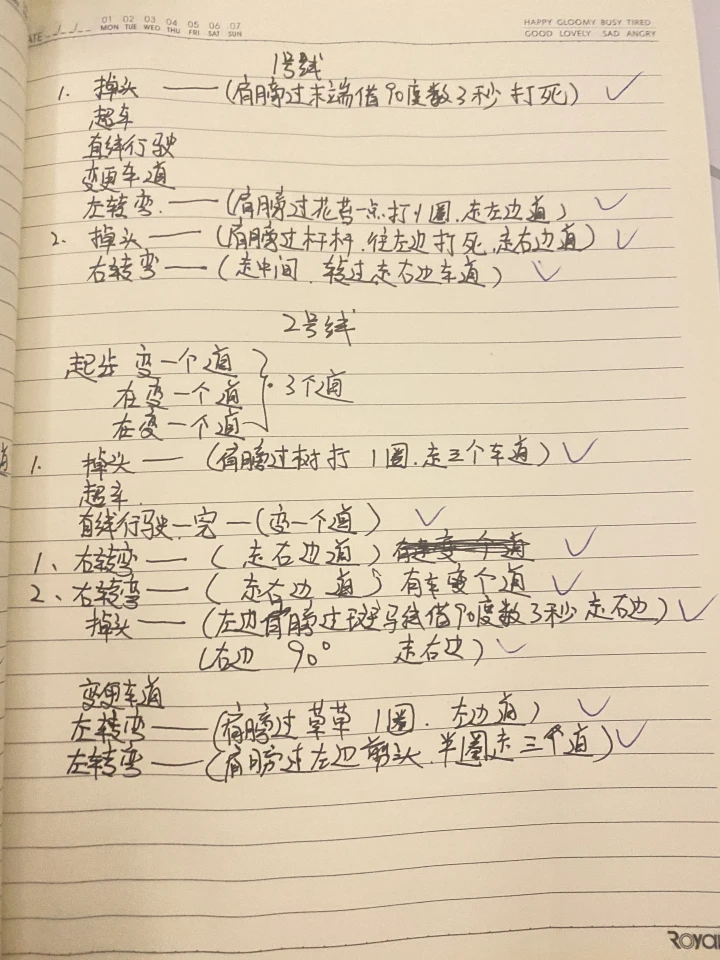 ATE / /
01 02 03 04 05 06 07
MON TUE WED THU FRI SAT SUN
HAPPY GLOOMY BUSY TIRED
GOOD LOVELY SAD ANGRY
1号线
1. 掉头 —— (肩膀过末端借90度数3秒打死) ✓
超车
直线行驶
变更车道
左转弯. —— (肩膀过花苔一点打1圈.走左边道) ✓
2. 掉头 —— (肩膀过杆杆.往左边打死.走右边道) ✓
右转弯 —— (走中间.转过走右边车道) ✓
2号线
起步 变一个道
在变一个道
在变一个道
3个道
1. 掉头 —— (肩膀过树打1圈.走三个车道) ✓
超车.
直线行驶一完一(变一个道) ✓
1、右转弯 —— (走右边道) ✓
2、右转弯 —— (走右边道) 有车变个道 ✓
掉头 —— (左边肩膀过斑马线借90度数3秒走右边) ✓
(右边 90° 走右边) ✓
变更车道
左转弯 —— (肩膀过草草1圈.左边道) ✓
左转弯 —— (肩膀过左边剪头.半圈走三个道) ✓
道